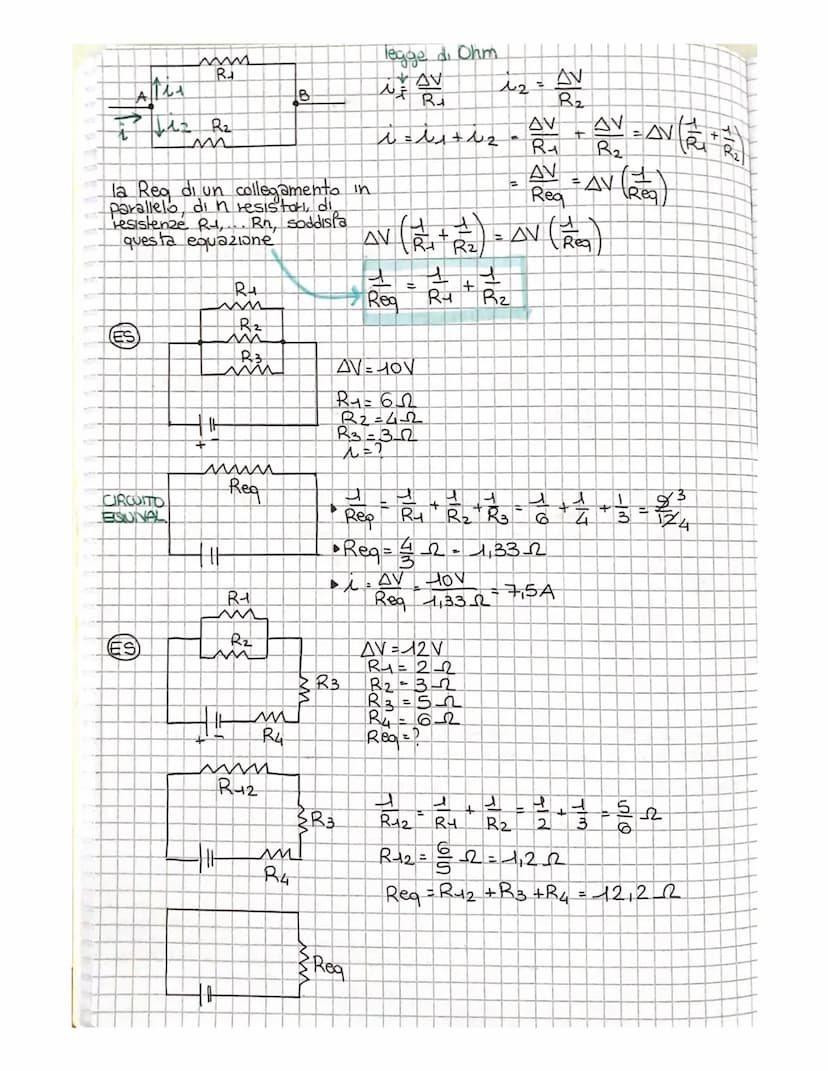 legge di Ohm
R1
A
i1
B
i
i2
R2
i1 = ΔV/R1 i2 = ΔV/R2
i = i1 + i2 = ΔV/R1 + ΔV/R2 = ΔV (1/R1 + 1/R2)
= ΔV/Req = ΔV (1/Req)
la Req di un collegamento in
parallelo, di n resistori, di
resistenze R1, ... Rn, soddisfa
questa equazione
ΔV (1/R1 + 1/R2) = ΔV (1/Req)
1/Req = 1/R1 + 1/R2
ES
R1
R2
R3
+ -
ΔV = 10V
R1 = 6Ω
R2 = 4Ω
R3 = 3Ω
i = ?
CIRCUITO
EQUIVAL.
Req
1/Req = 1/R1 + 1/R2 + 1/R3 = 1/6 + 1/4 + 1/3 = 9/12 3/4
Req = 4/3 Ω = 1,33 Ω
i = ΔV/Req = 10V/1,33Ω = 7,5A
ES
R1
R2
R3
R4
+ -
ΔV = 12V
R1 = 2Ω
R2 = 3Ω
R3 = 5Ω
R4 = 6Ω
Req = ?
R12
R3
R4
1/R12 = 1/R1 + 1/R2 = 1/2 + 1/3 = 5/6 Ω
R12 = 6/5 Ω = 1,2 Ω
Req = R12 + R3 + R4 = 12,2 Ω
Req